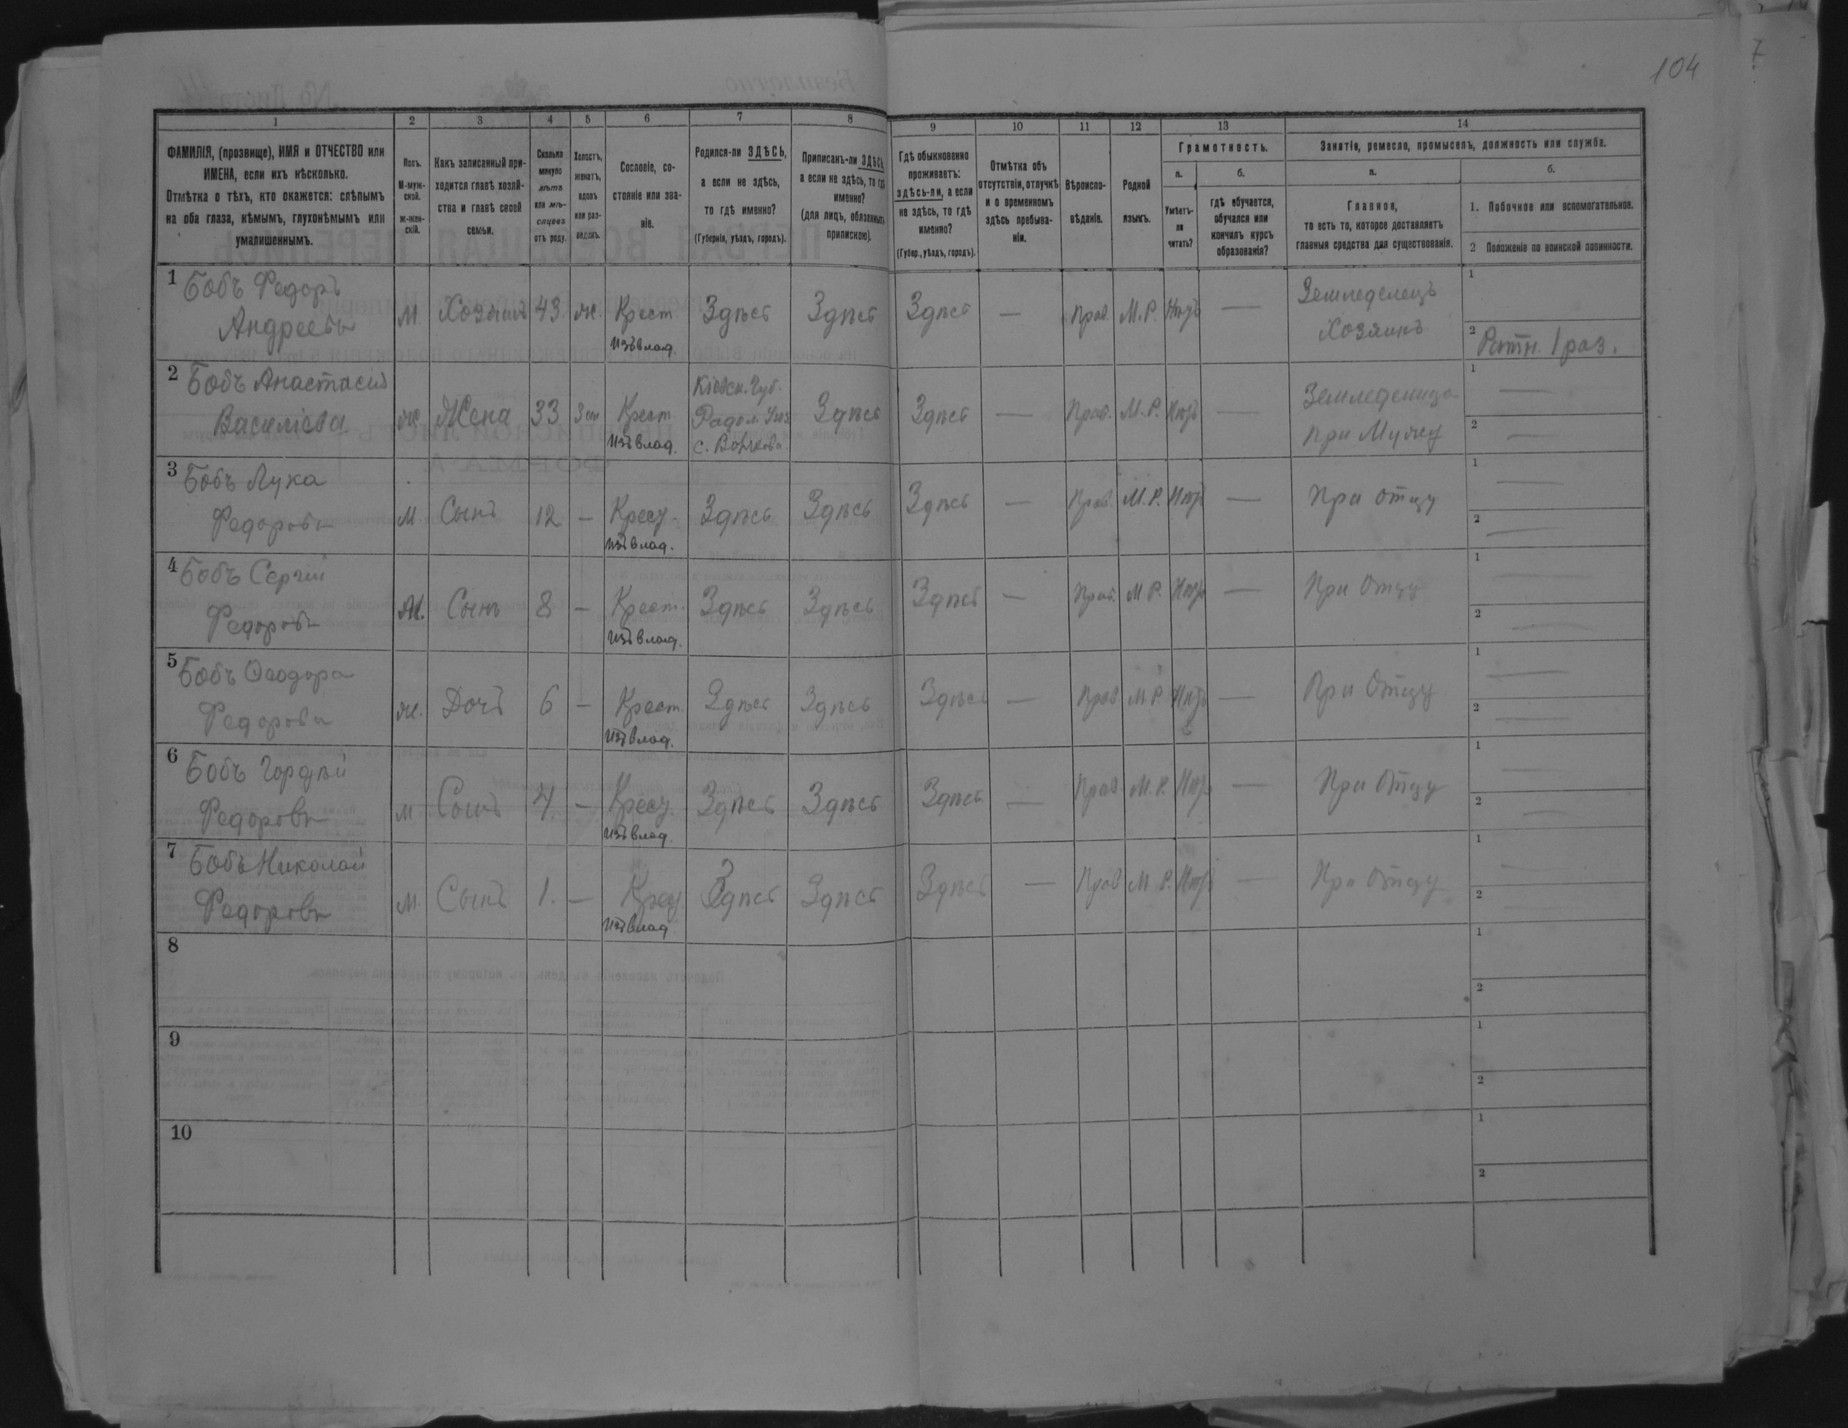 104
7
1 2 3 4 5 6 7 8 9 10 11 12 13 14
ФАМИЛІЯ, (прозвище), ИМЯ и ОТЧЕСТВО или
ИМЕНА, если ихъ нѣсколько.
Отмѣтка о тѣхъ, кто окажется: слѣпымъ
на оба глаза, нѣмымъ, глухонѣмымъ или
умалишеннымъ.
Полъ.
М-муж-
ской.
Ж-жен-
скій.
Какъ записанный при-
ходится главѣ хозяй-
ства и главѣ своей
семьи.
Сколько
минуло
лѣтъ
или мѣ-
сяцевъ
отъ роду.
Холостъ,
женатъ,
вдовъ
или раз-
веденъ.
Сословіе, со-
стояніе или зва-
ніе.
Родился-ли ЗДѢСЬ,
а если не здѣсь,
то гдѣ именно?
(Губернія, уѣздъ, городъ).
Приписанъ-ли ЗДѢСЬ,
а если не здѣсь, то гдѣ
именно?
(для лицъ, обязанныхъ
припискою).
Гдѣ обыкновенно
проживаетъ:
здѣсь-ли, а если
не здѣсь, то гдѣ
именно?
(Губер., уѣздъ, городъ).
Отмѣтка объ
отсутствіи, отлучкѣ
и о временномъ
здѣсь пребыва-
ніи.
Вѣроиспо-
вѣданіе.
Родной
языкъ.
Грамотность.
а.
Умѣетъ-
ли
читать?
б.
гдѣ обучается,
обучался или
кончилъ курсъ
образованія?
Занятіе, ремесло, промыселъ, должность или служба.
а.
Главное,
то есть то, которое доставляетъ
главныя средства для существованія.
б.
1. Побочное или вспомогательное.
2 Положеніе по воинской повинности.
1 Бобъ Федоръ
Андреевъ
М. Хозяинъ 43 ж. Крест.
изъ влад.
Здѣсь Здѣсь Здѣсь — Прав. М.Р. Нѣтъ —
Земледелецъ
Хозяинъ
1
2 Ратн. 1 раз.
2 Бобъ Анастасія
Василіева
ж Жена 33 Зам Крест.
изъ влад.
Кіевск. Губ.
Радом. Уѣз
Здѣсь Здѣсь — Прав. М.Р. Нѣтъ —
при Мужу
1 —
2 —
3 Бобъ Лука
Федоровъ
М Сынъ 12 — Крест.
изъ влад.
Здѣсь Здѣсь Здѣсь — Прав. М.Р. Нѣтъ — При отцу
1 —
2 —
4 Бобъ Сергій
Федоровъ
М. Сынъ 8 — Крест.
изъ влад.
Здѣсь Здѣсь Здѣсь — Прав. М.Р. Нѣтъ — При Отцу
1 —
2 —
5 Бобъ Ѳеодора
Федорова
ж. Дочь 6 — Крест.
изъ влад.
Здѣсь Здѣсь Здѣсь — Прав М.Р. Нѣтъ — При Отцу
1 —
2 —
6 Бобъ Гордѣй
Федоровъ
м Сынъ 4 — Крест.
изъ влад.
Здѣсь Здѣсь Здѣсь — Прав М.Р. Нѣтъ — При Отцу
1 —
2 —
7 Бобъ Николай
Федоровъ
М. Сынъ 1. — Крест.
изъ влад
Здѣсь Здѣсь Здѣсь — Прав М.Р. Нѣтъ — При Отцу
1 —
2 —
8
1
2
9
1
2
10
1
2